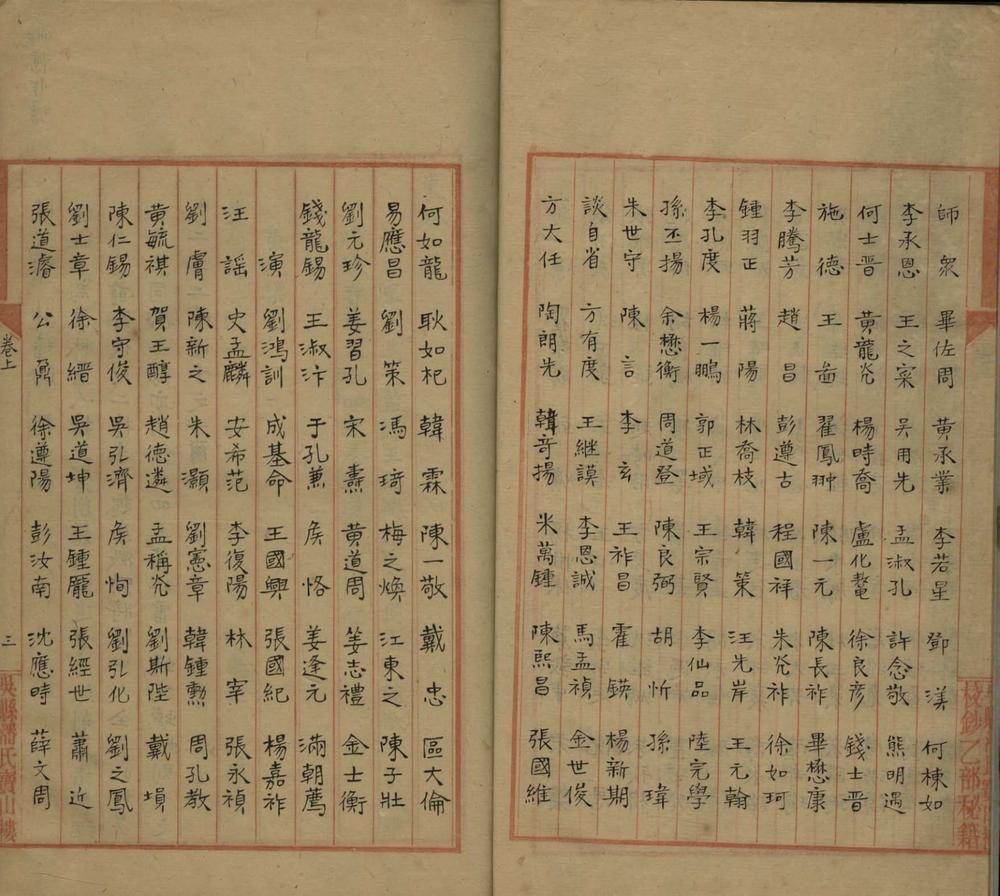 師衆 畢佐周 黄承業 李若星 鄧渼 何棟如
李承恩 王之寀 吴用先 孟淑孔 許念敬 熊明遇
何士晋 黄龍光 楊時喬 盧化鳌 徐良彦 錢士晋
施德 王啚 翟鳳翀 陳一元 陳長祚 畢懋康
李騰芳 趙昌 彭遵古 程國祥 朱光祚 徐如珂
鍾羽正 蔣陽 林喬枝 韓策 汪先岸 王元翰
李孔度 楊一鵬 郭正域 王宗賢 李仙品 陸完學
孫丕揚 余懋衡 周道登 陳良弼 胡忻 孫瑋
朱世守 陳言 李玄 王祚昌 霍鍈 楊新期
談自省 方有度 王継謨 李恩誠 馬孟禎 金世俊
方大任 陶朗先 韓竒揚 米萬鍾 陳熙昌 張國維
何如龍 耿如杞 韓霖 陳一敬 戴忠 區大倫
易應昌 劉策 馮琦 梅之煥 江東之 陳子壯
劉元珍 姜習孔 宋燾 黄道周 姜志禮 金士衡
錢龍錫 王淑汴 于孔兼 矦恪 姜逢元 滿朝薦
演 劉鴻訓 成基命 王國興 張國紀 楊嘉祚
汪謡 史孟麟 安希范 李復陽 林宰 張永禎
劉膚 陳新之 朱灝 劉憲章 韓鍾勲 周孔教
黄毓祺 賀王醇 趙德遴 孟稱光 劉斯陛 戴塤
陳仁錫 李守俊 吳弘濟 矦恂 劉弘化 劉之鳳
劉士章 徐縉 吳道坤 王鍾龎 張經世 蕭近
張道濬 公鼐 徐遵陽 彭汝南 沈應時 薛文周
卷上
三
吳縣潘氏寶山樓
校鈔乙部秘籍